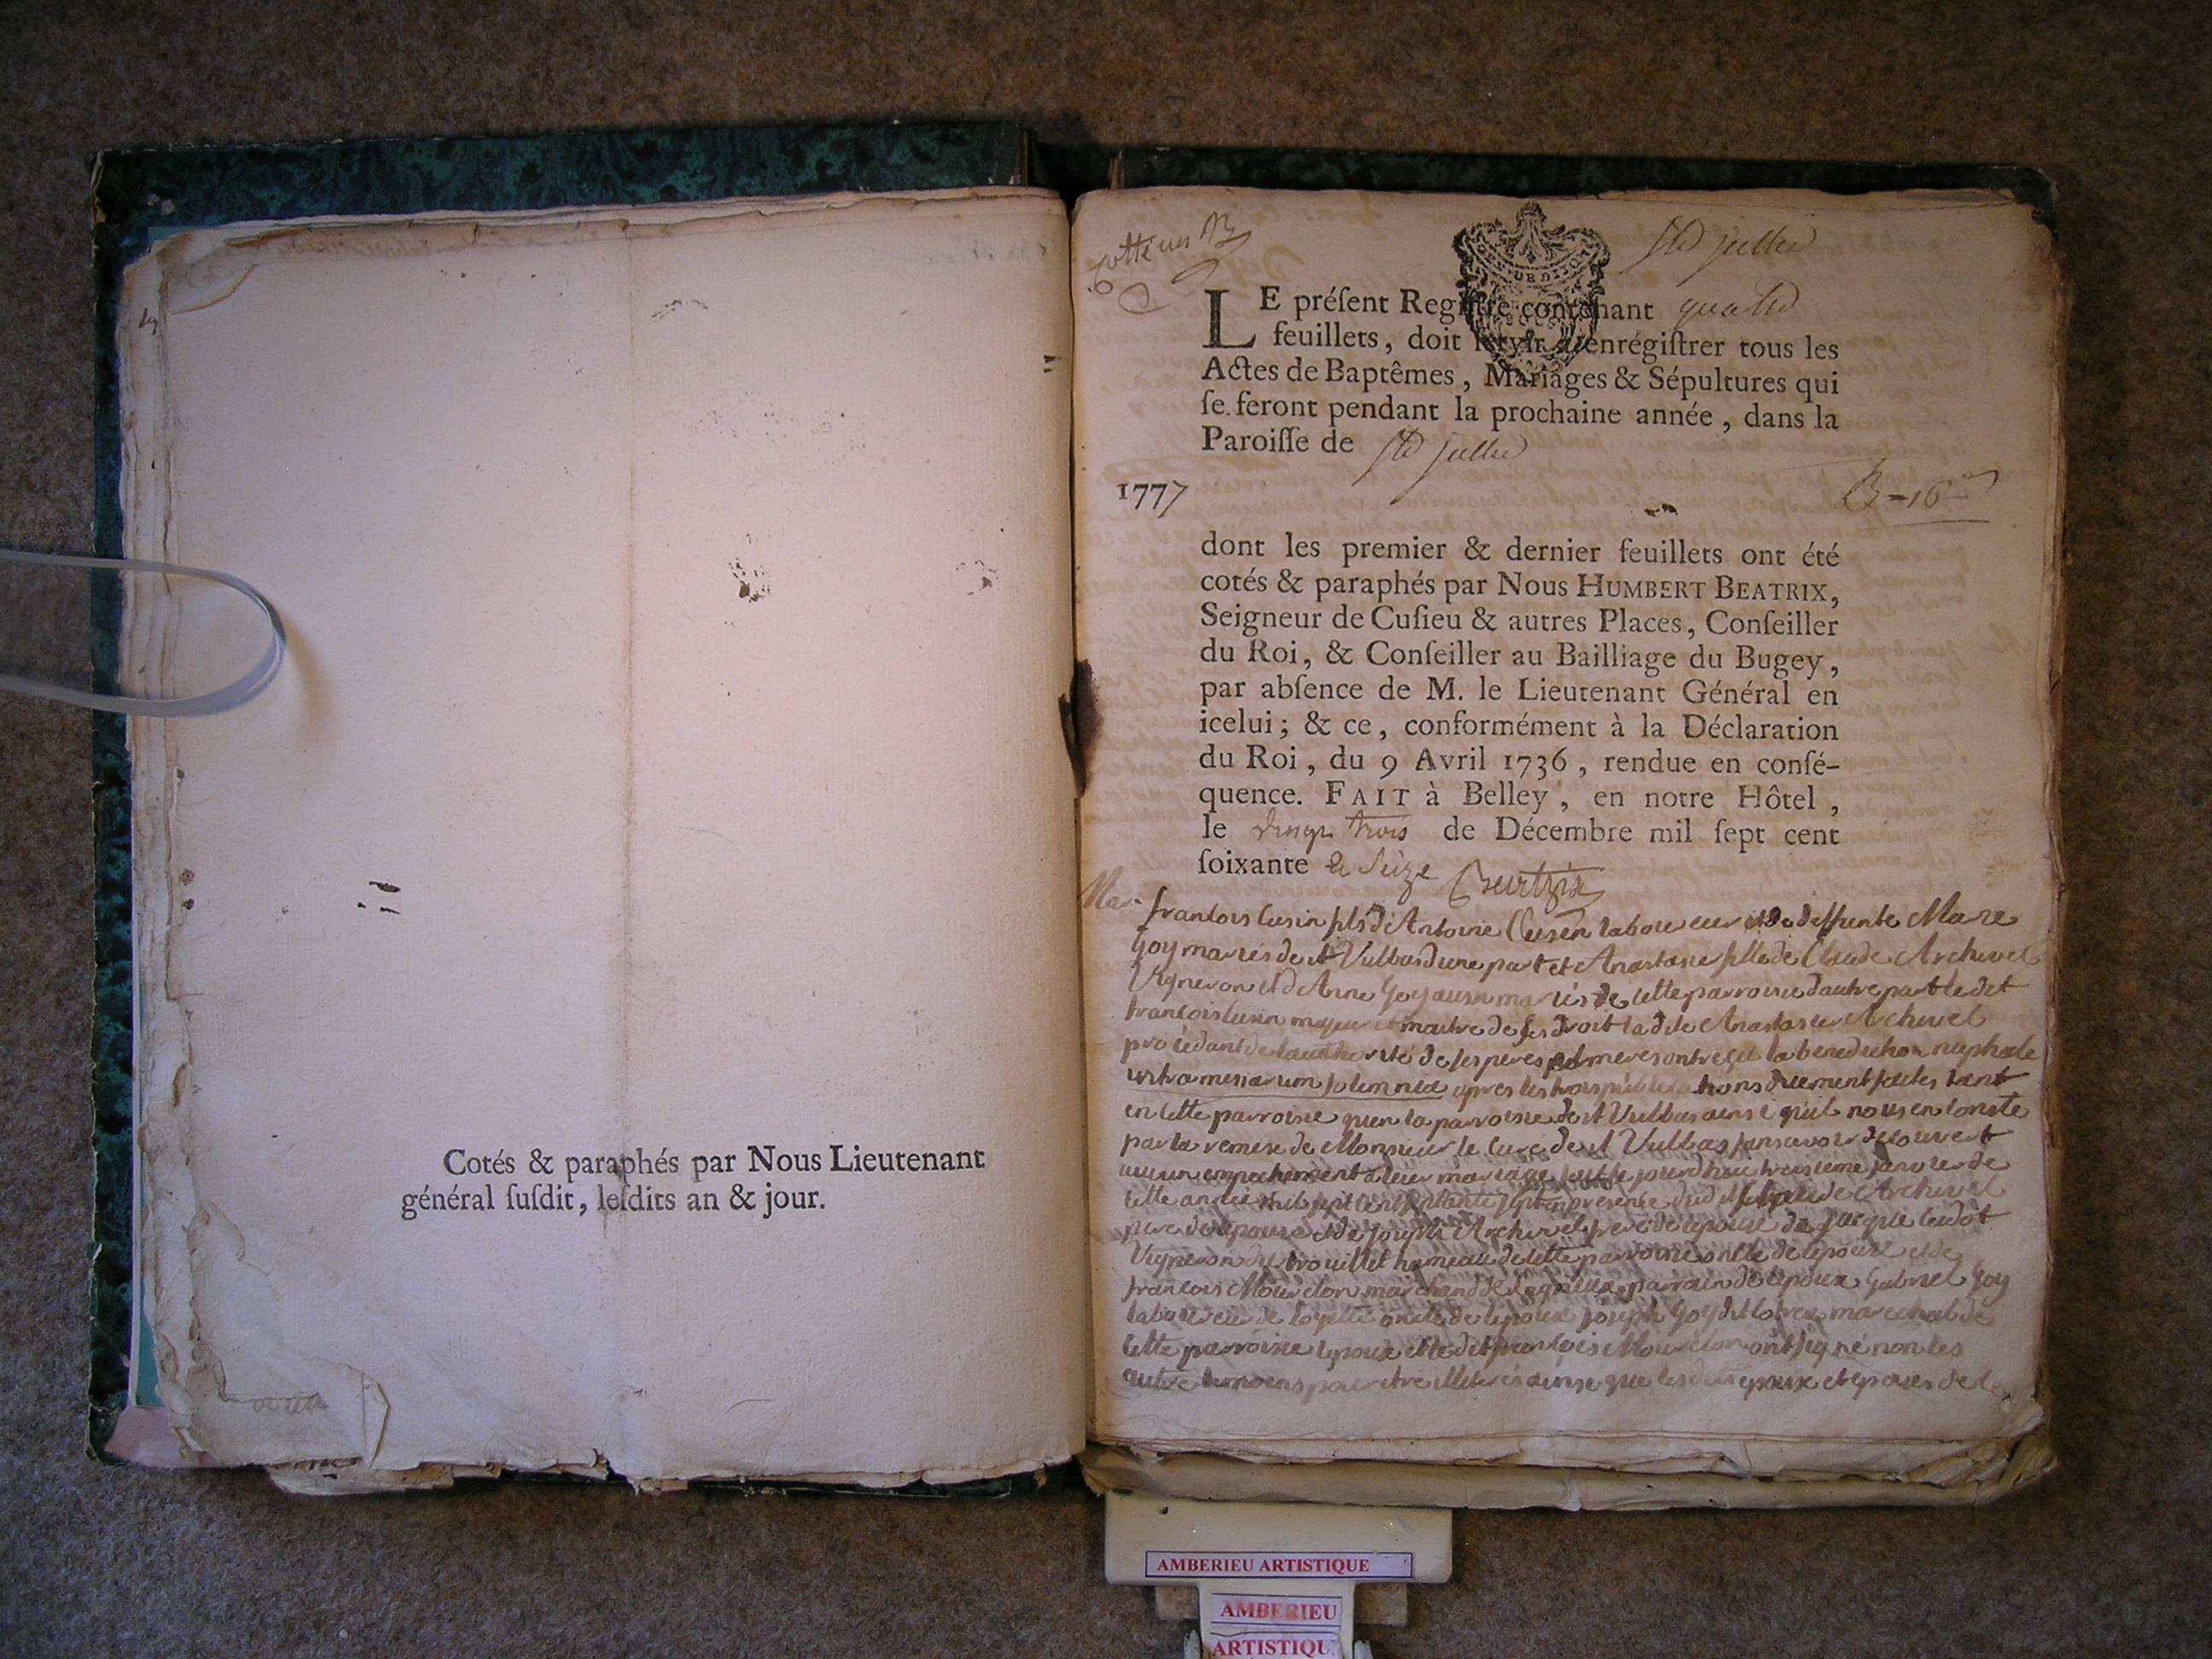 Cotés & paraphés par Nous Lieutenant
général ſuſdit, leſdits an & jour.
Ste Jullie
LE préſent Regiſtre contenant quatre
feuillets, doit ſervir à enrégiſtrer tous les
Actes de Baptêmes, Mariages & Sépultures qui
ſe feront pendant la prochaine année, dans la
Paroiſſe de Ste Jullie
1777
dont les premier & dernier feuillets ont été
cotés & paraphés par Nous HUMBERT BEATRIX,
Seigneur de Cuſieu & autres Places, Conſeiller
du Roi, & Conſeiller au Bailliage du Bugey,
par abſence de M. le Lieutenant Général en
icelui; & ce, conformément à la Déclaration
du Roi, du 9 Avril 1736, rendue en conſé-
quence. FAIT à Belley, en notre Hôtel,
le vingt trois de Décembre mil ſept cent
ſoixante & seize Beatrix
Mar.
francois Cusin fils d'Antoine Cusin laboureur et de deffunte Marie
Goy mariés de st Vulbas d'une part et Anastasie fille de Claude Archirel
Vigneron et d'Anne Goy aussi mariés de cette parroisse d'autre part ledit
francois Cusin majeur et maitre de ses droit la dite Anastasie Archirel
procedant de lautherité de ses peres et meres ont reçu la benediction nuptiale
intra missarum solemnia apres les trois publications duement faites tant
en cette parroisse qu'en la parroisse de st Vulbas ainsi qu'il nous en conste
par la remise de Monsieur le curé de st Vulbas sans avoir decouvert
aucun empechement a leur mariage fait ce jourdhui troisieme janvier de
cette année mil sept cent septante sept en presence dud it Claude Archirel
pere de l'epouse et de joseph Archirel de l'epouse de
Vigneron du hameau de cette parroisse oncle de l'epouse et de
francois marchand de Lagnieu parrain de l'epoux Gabriel Goy
laboureur de Loyette oncle de l'epoux joseph Goy marechal de
cette parroisse l'epoux et ledit francois ont signé non les
autre temoins pour etre illiterés ainsi que les
AMBERIEU ARTISTIQUE
AMBERIEU
ARTISTIQU